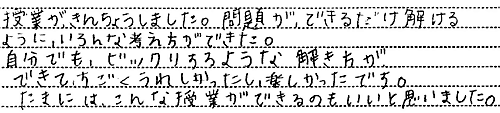 授業がきんちょうしました。問題が、できるだけ解ける
ように、いろんな考え方ができた。
自分でも、ビックリするような解き方が
できて、すごくうれしかったし、楽しかったです。
たまには、こんな授業ができるのもいいと思いました。